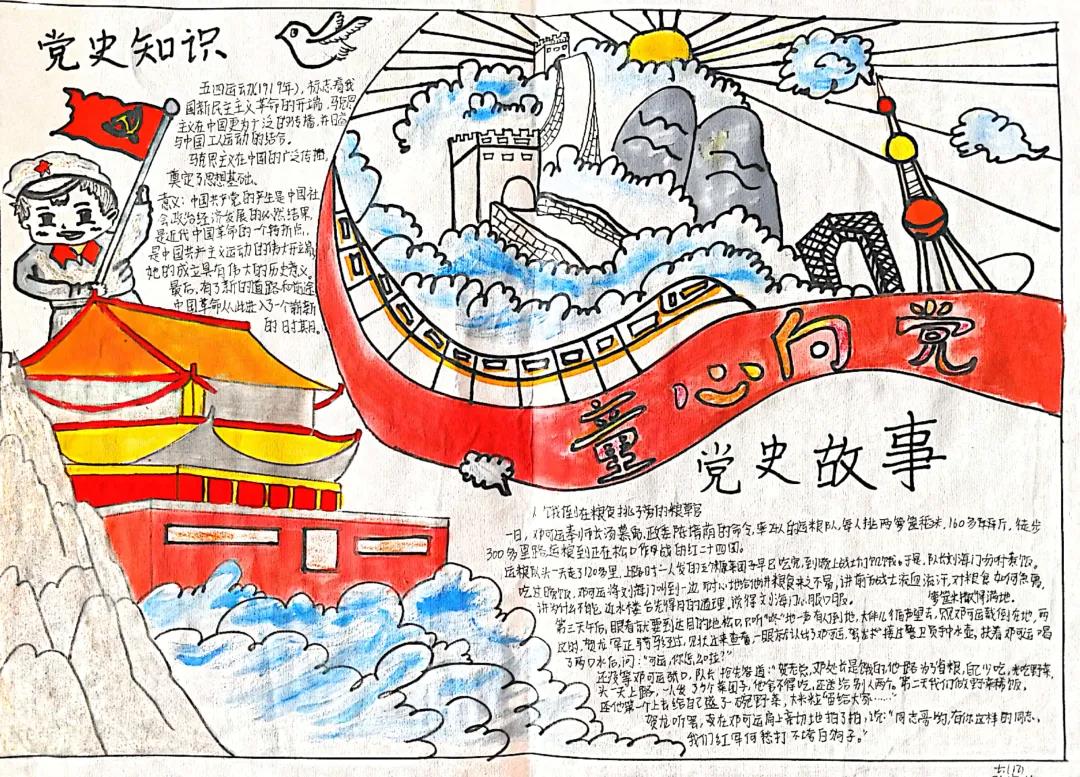 党史知识
五四运动(1919年),标志着我
国新民主主义革命的开端,马克思
主义在中国更为广泛的传播,并日益
与中国工人运动的结合。
马克思主义在中国的广泛传播,
奠定了思想基础。
意义:中国共产党的产生是中国社
会政治经济发展的必然结果,
是近代中国革命的一个转折点,
是中国共产主义运动的伟大开端,
她的成立具有伟大的历史意义。
最后,有了新的道路和前途
中国革命从此进入了一个崭新
的日时期。
童心向党
党史故事
饿倒在粮食挑子旁的粮草官
一日,邓可运奉师长汤慕禹、政委陈的命令,率百人的运粮队,每人挑两箩筐稻米,160多斤,徒步
300多里路运粮到正在松口作战的红二十四团。
运粮队头一天走了120多里,上路时一人发的3个糠菜团子早已吃完,到晚上战士们饥饿。于是,队长刘海门吩咐煮饭。
吃过晚饭,邓可运将刘海门叫到一边,耐心地给他讲粮食来之不易,讲前方战士流血流汗,对粮食如何急需,
讲为什么不能近水楼台先得月的道理,说得刘海门心服口服。
箩筐米撒得满地。
第三天午后,眼看就要到达目的地松口,只听“咚”地一声有人倒地,大伙儿循声望去,只见邓可运栽倒在地,两
这时,贺龙军正骑马经过,见状上来查看,一眼就认出了邓可运,接过警卫员水壶,扶着邓可运喝
了两口水后,问:“可运,你怎么啦?”
还没等邓可运张口,队长抢先答道:“贺老总,邓处长是饿的,他一路为了省粮,自己少吃,光吃野菜,
头一天上路,一人发了3个菜团子,他舍不得吃,还送给别人两个。第二天我们做野菜稀饭,
还他第一个上去给自己盛了一碗野菜,大米粒留给大家……”
贺龙听罢,在邓可运肩上亲切地拍了拍,说:“同志哥哟,有你这样的同志,
我们红军何愁打不垮白狗子。”